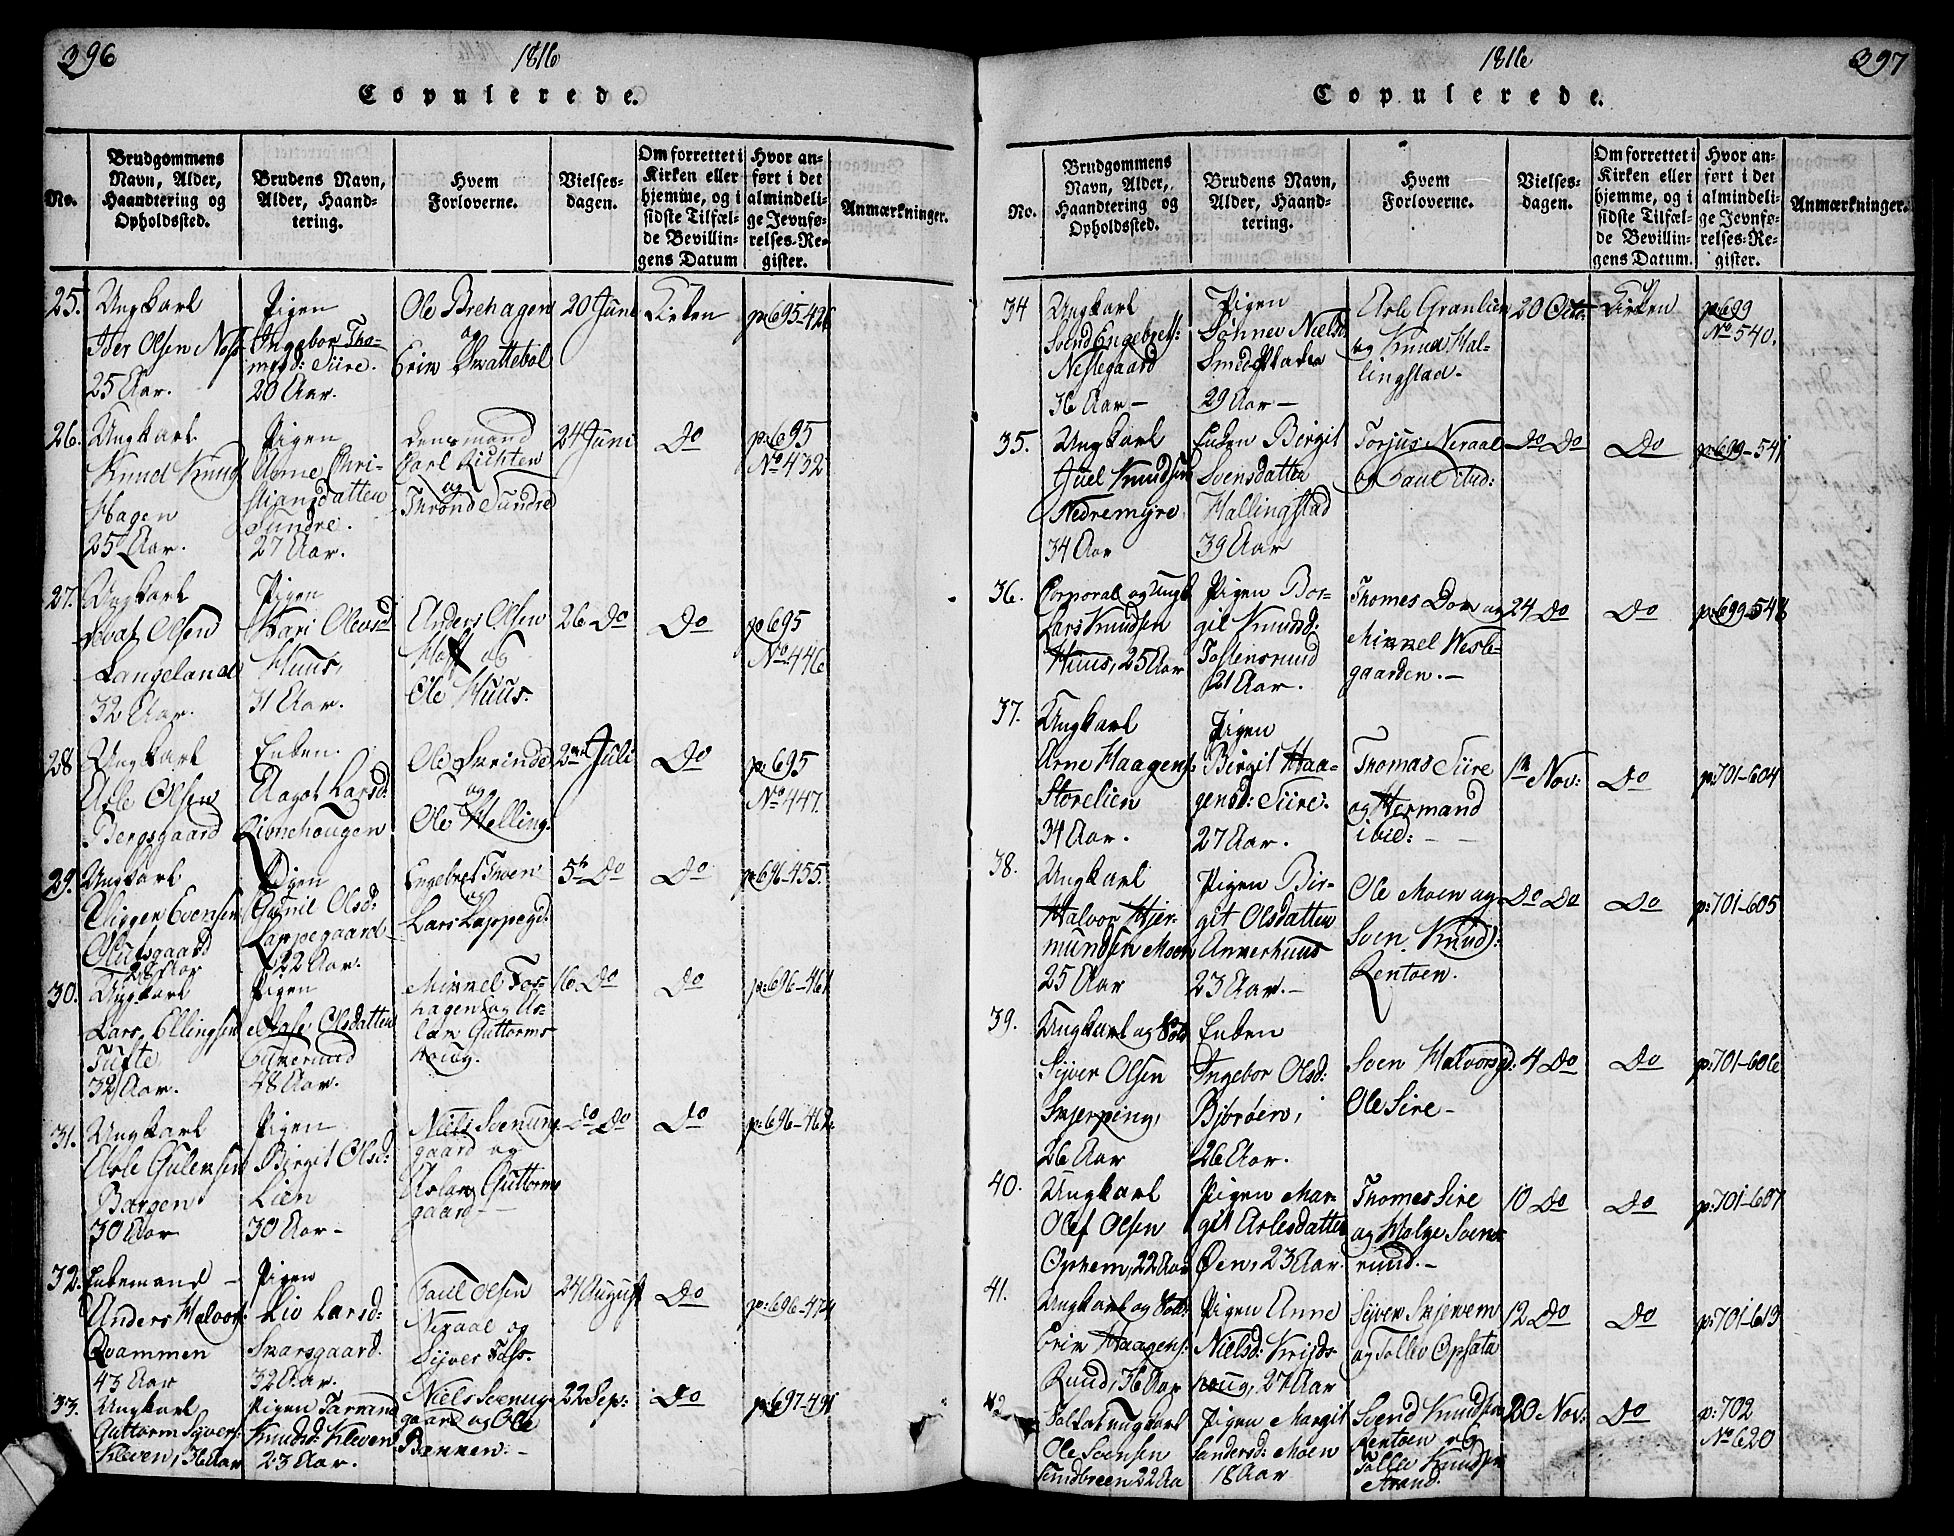 396
1816
Copulerede.
No.
Brudgommens
Navn, Alder,
Haandtering og
Opholdssted.
Brudens Navn,
Alder, Haand-
tering.
Hvem
Forloverne.
Vielses-
dagen.
Om forrettet i
Kirken eller
hjemme, og i
sidste Tilfæl-
de Bevillin-
gens Datum
Hvor an-
ført i det
almindeli-
ge Jevnfø-
relses-Re-
gister.
Anmærkninger.
25.
Ungkarl
Iver Olsen
25 Aar.
Pigen
Ingebor Tho-
mesd: Siire.
20 Aar.
Ole Brehagen
og
Erik Skattebol
20 Juni
Kirken
p:695-426
26.
Ungkarl
Knud Knuds
Hagen
25 Aar.
Pigen
Anne Chri-
stiansdatten
Sundre.
27 Aar.
Lensmand
Carl Richten
og
Thrond Sundre
24 Juni
Do
p:695
No 432
27.
Ungkarl
Olsen
Langeland
32 Aar.
Pigen
Kari Olevsd
Huus,
31 Aar.
Anders Olsen
Hoff og
Ole Huus.
26 Do
Do
p:695
No 446
28
Ungkarl
Asle Olsen
Bergsgaard
Enken.
Aagot Larsd:
Ole Skrinde
og
Ole Helling.
2den Juli
Do
p:695
No 447.
29.
Ungkarl
Viggen Evensen
28 Aar
Pigen
Gunil Olsd:
Lappegaard
22 Aar.
Engebret Thoen
og
Lars Lappegd:
5te Do
Do
p:696-455.
30.
Ungkarl
Lars Ellingsen
Tufte
32 Aar.
Pigen
Aase Olsdatten
48 Aar.
Mikkel Tors-
hagen og As-
lak Guttorms
houg.
16. Do
Do
p:696-461
31.
Ungkarl
Asle Gulensen
Bargen
30 Aar
Pigen
Birgit Olsd:
Lien
30 Aar-
Niels Svenung-
gaard og
Aslak Guttorms
gaard
Do Do
Do
p:696-462.
32.
Enkemand
Anders Halvors:
Qvammen
43 Aar
Pigen
Liv Larsd:
Skarsgaard.
32 Aar.
Paul Olsen
Neraal og
Syver Toss.
24 August
Do
p:696-474
33.
Ungkarl
Guttorm Syvers:
Kleven, 36 Aar
Pigen
Knudsd: Kleven
23 Aar.
Niels Svenug-
gaard og Ole
Bakken.
22 Sep:
Do
p:697-491
1816
397
Copulerede.
No.
Brudgommens
Navn, Alder,
Haandtering og
Opholdssted.
Brudens Navn,
Alder, Haand-
tering.
Hvem
Forloverne.
Vielses-
dagen.
Om forrettet i
Kirken eller
hjemme, og i
sidste Tilfæl-
de Bevillin-
gens Datum.
Hvor an-
ført i det
almindeli-
ge Jevnfø-
relses-Re-
gister.
Anmærkninger.
34
Ungkarl
Svend Engebrets:
Neslegaard
36 Aar-
Pigen
Sønnev Nielsd:
29 Aar-
Asle Granlien
og Knud Hal-
lingstad.
20 Octo:
Kirken
p:699
No 540.
35.
Ungkarl
Juel Knudsen
Nedremyre
34 Aar
Enken Birgit
Svensdatten
Hallingstad
39 Aar
Torjus Neraal
og Paul Stad:
Do Do
Do
p:699-541
36.
Corporal og Ungk
Lars Knudsen
Huus, 25 Aar
Pigen Bor-
gil Knudsd:
Tostensrund
21 Aar.
Thomes Dokk og
Mikkel Weste-
gaarden.-
24 Do
Do
p:699-548
37.
Ungkarl
Arne Haagens:
Storelien
34 Aar.
Pigen
Birgit Haa-
gensd: Siire.
27 Aar.
Thomas Siire
og Hermand
ibid:
1te Nov:
Do
p:701-604
38.
Ungkarl
Halvor Hjer-
mundsen Moen
25 Aar
Pigen Bir-
git Olsdatten
Ankerhuus
23 Aar.-
Ole Moen og
Sven Knuds:
Rentoen.
Do Do
Do
p:701-605
39.
Ungkarl og Sold
Syver Olsen
Skjerping,
26 Aar
Enken
Ingebor Olsd:
Bjøröen,
26 Aar.
Sven Halvorsg:
Ole Sire-
4 Do
Do
p:701-606
40.
Ungkarl
Olef Olsen
Ophem, 22 Aar
Pigen Mar-
git Arlesdatten
Øen, 23 Aar
Thomes Sire
og Holge Svens
rund.-
10 Do
Do
p:701-607
41.
Ungkarl og Sold:
Erik Haagens:
Ruud, 36 Aar
Pigen Anne
Nielsd: Krists
houg, 27 Aar
Syver Skjerven
og Tollev Opsata
12 Do
Do
p:701-619
42
Soldat Ungkarl
Ole Svensen
Sundbreen 22 Aa
Pigen Margit
Sandersd: Moen
18 Aar
Svend Knudsen
Rentoen og
Tollev Knudsen
Strand.
20 Nov:
Do
p:702
No 620